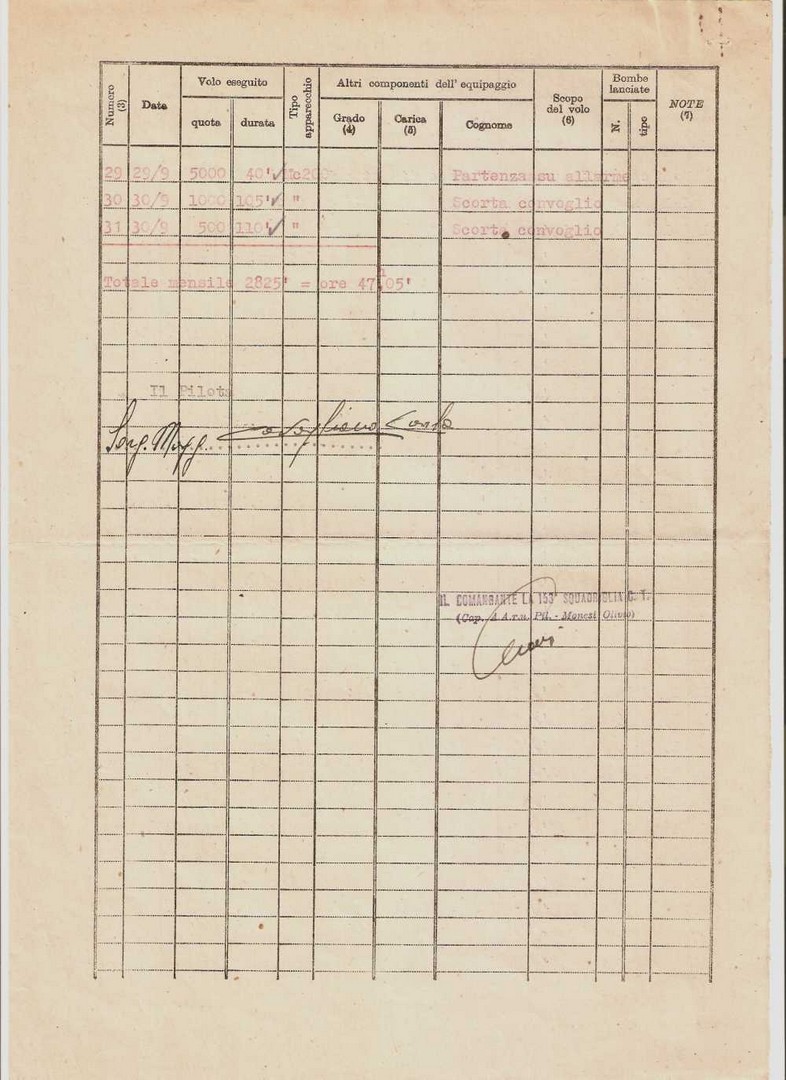 Numero (3) Data Volo eseguito Tipo apparecchio Altri componenti dell' equipaggio Scopo del volo (6) Bombe lanciate NOTE (7)
quota durata Grado (4) Carica (5) Cognome N. tipo
29 29/9 5000 40' Mc200 Partenza su allarme
30 30/9 1000 105' " Scorta convoglio
31 30/9 500 110' " Scorta convoglio
Totale mensile 2825' = ore 47h05'
Il Pilota
Serg. Magg.
IL COMANDANTE LA 153ª SQUADRIGLIA C. T.
(Cap. A.A.r.n. Pil. - Monesi Olivio)